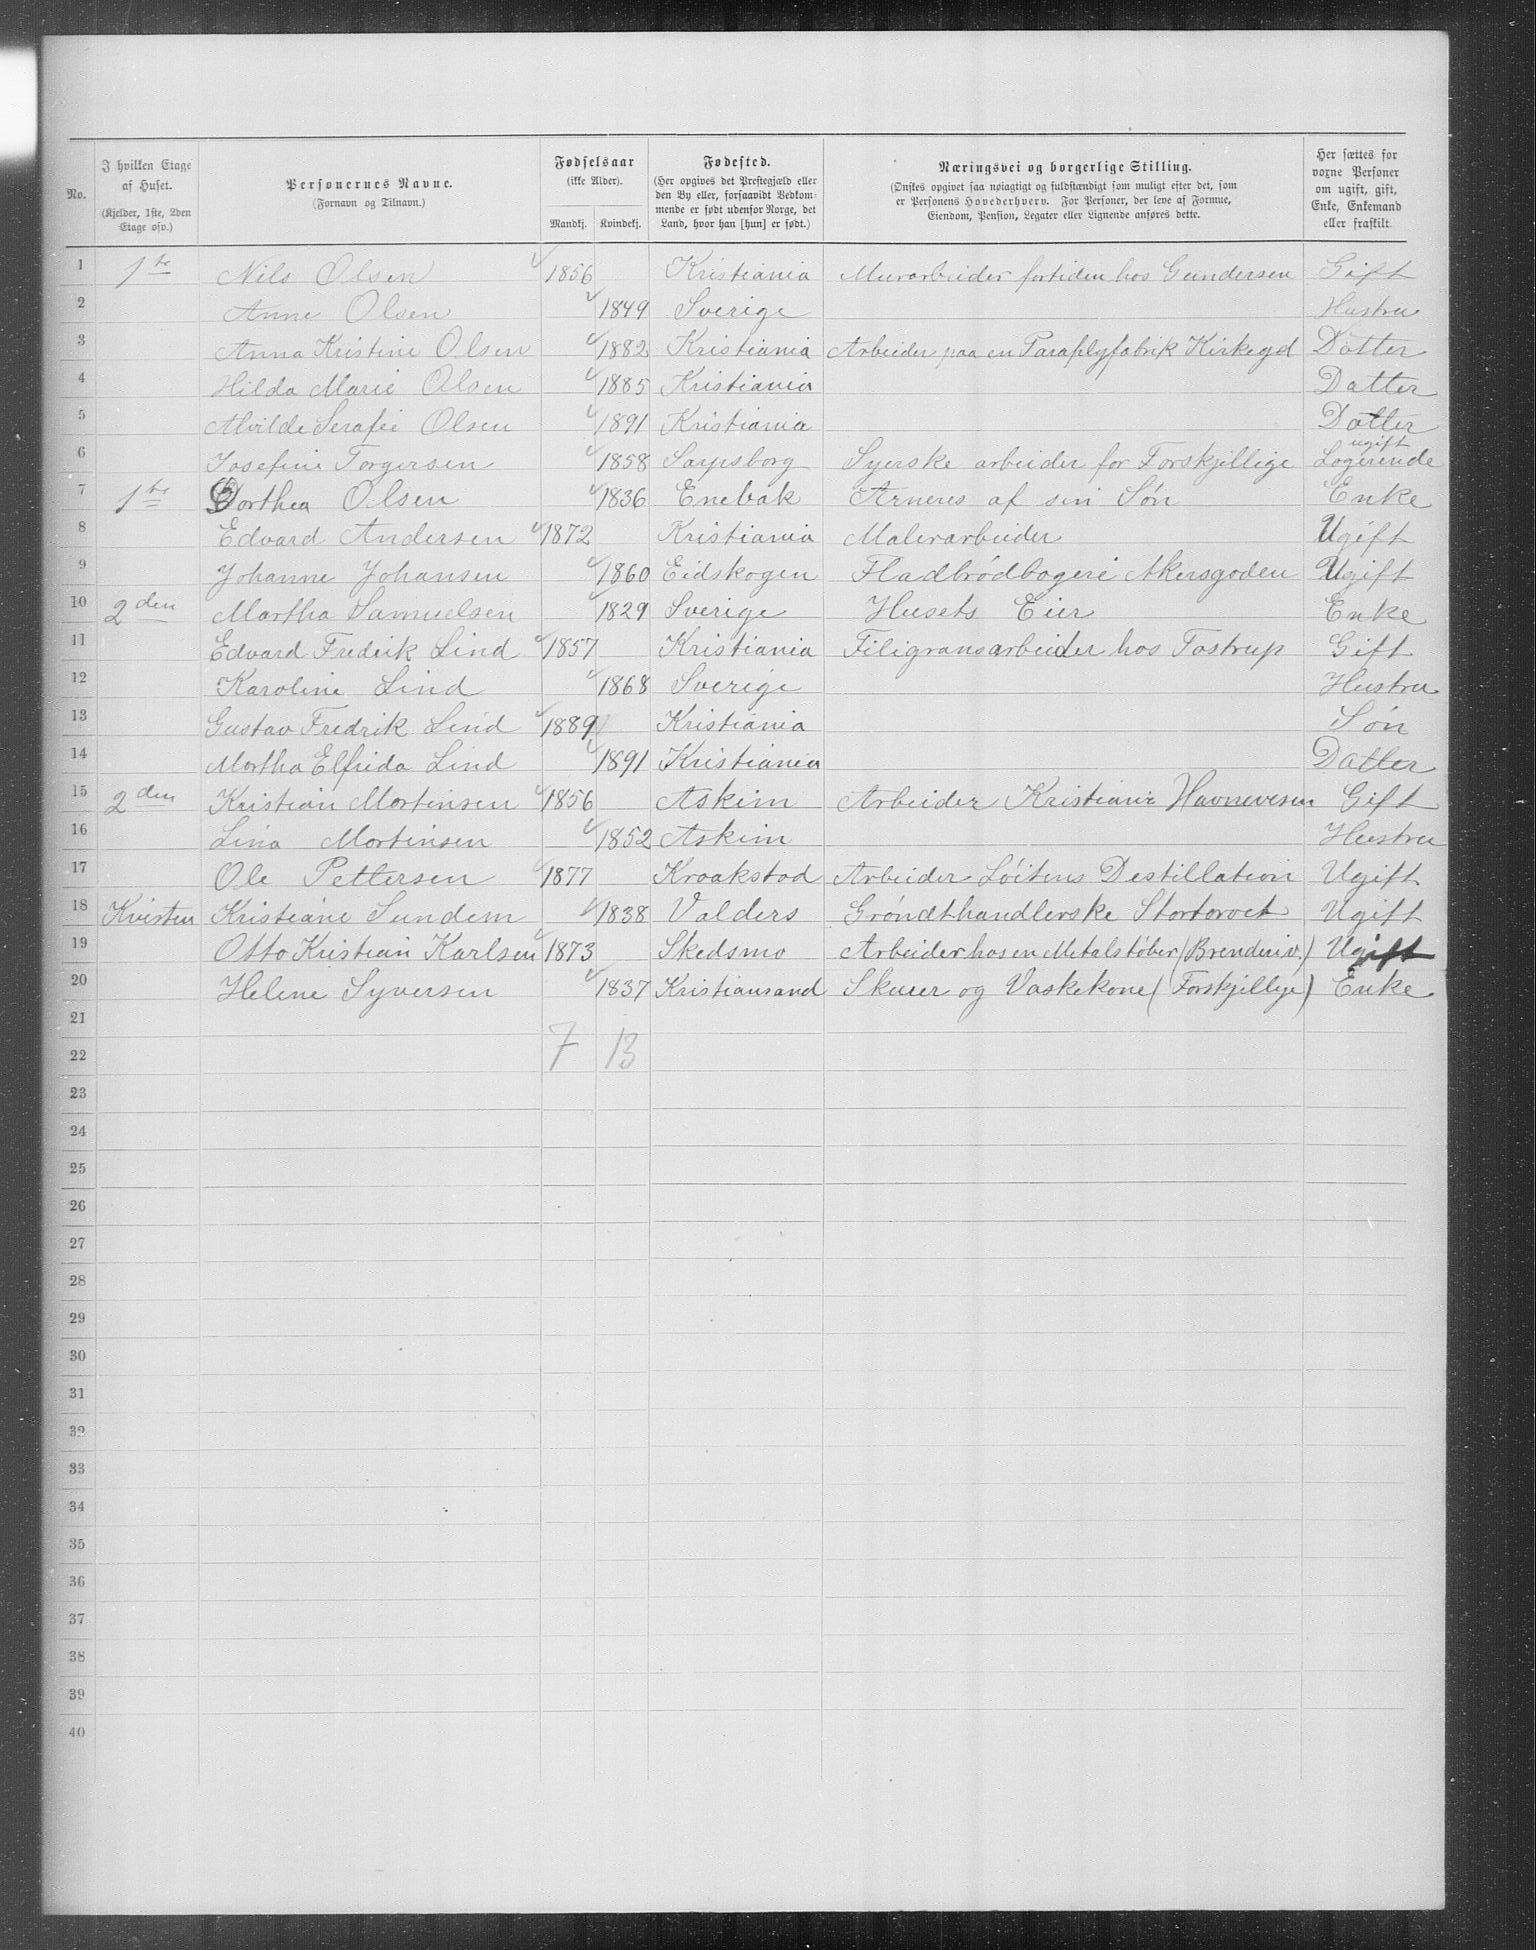 No.
I hvilken Etage af Huset.
(Kjelder, 1ste, 2den Etage osv.)
Personernes Navne.
(Fornavn og Tilnavn.)
Fødselsaar
(ikke Alder).
Mandkj. Kvindekj.
Fødested.
(Her opgives det Prestegjæld eller den By eller, forsaavidt Vedkommende er født udenfor Norge, det Land, hvor han [hun] er født.)
Næringsvei og borgerlige Stilling.
(Ønskes opgivet saa nøiagtigt og fuldstændigt som muligt efter det, som er Personens Hovederhverv. For Personer, der leve af Formue, Eiendom, Pension, Legater eller Lignende anføres dette.
Her sættes for voxne Personer om ugift, gift, Enke, Enkemand eller fraskilt.
1 1ste Nils Olsen 1856 Kristiania Murarbeider fortiden hos Gundersen Gift
2 Anne Olsen 1849 Sverige Hustru
3 Anna Kristine Olsen 1882 Kristiania Arbeider paa en Paraplyfabrik Kirkegd Datter
4 Hilda Marie Olsen 1885 Kristiania Datter
5 Alvilde Serafie Olsen 1891 Kristiania Datter
6 Josefine Torgersen 1858 Sarpsborg Syerske arbeider for Forskjellige ugift Logerende
7 1ste Dorthea Olsen 1836 Enebak Arneres af sin Søn Enke
8 Edvard Andersen 1872 Kristiania Malerarbeider Ugift
9 Johanne Johansen 1860 Eidskogen Fladbrødbageri Akersgaden Ugift
10 2den Martha Samuelsen 1829 Sverige Husets Eier Enke
11 Edvard Fredrik Lind 1857 Kristiania Filigransarbeider hos Tostrup Gift
12 Karoline Lind 1868 Sverige Hustru
13 Gustav Fredrik Lind 1889 Kristiania Søn
14 Martha Elfrida Lind 1891 Kristiania Datter
15 2den Kristian Mortinsen 1856 Askim Arbeider Kristiania Havnevesen Gift
16 Lina Mortinsen 1852 Askim Hustru
17 Ole Pettersen 1877 Kraakstad Arbeider Løitens Destillation Ugift
18 Kvisten Kristiane Sundem 1838 Valders Grøndthandlerske Stortorvet Ugift
19 Otto Kristian Karlsen 1873 Skedsmo Arbeider hos en Metalstøber (Brenderiv.) Ugift
20 Helene Syversen 1837 Kristiansand Skurer og Vaskekone (Forskjellige) Enke
21
22 7 13
23
24
25
26
27
28
29
30
31
32
33
34
35
36
37
38
39
40